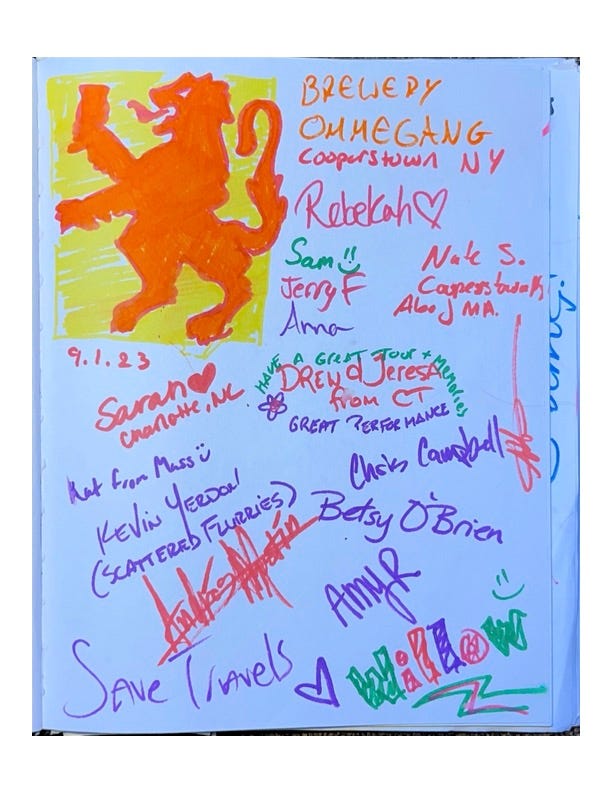 BREWERY
OMMEGANG
Cooperstown NY
Rebekah
Sam
Jerry F
Anna
Nate S.
Also MA.
9.1.23
Sarah
Charlotte, NC
HAVE A GREAT TOUR + Memories
DREW & Teresa
from CT
GREAT PERFORMANCE
Kat From Mass
Chris Campbell
KEVIN YERDON
(SCATTERED FLURRIES)
Betsy O'Brien
Amy R
SAVE Travels
Willow